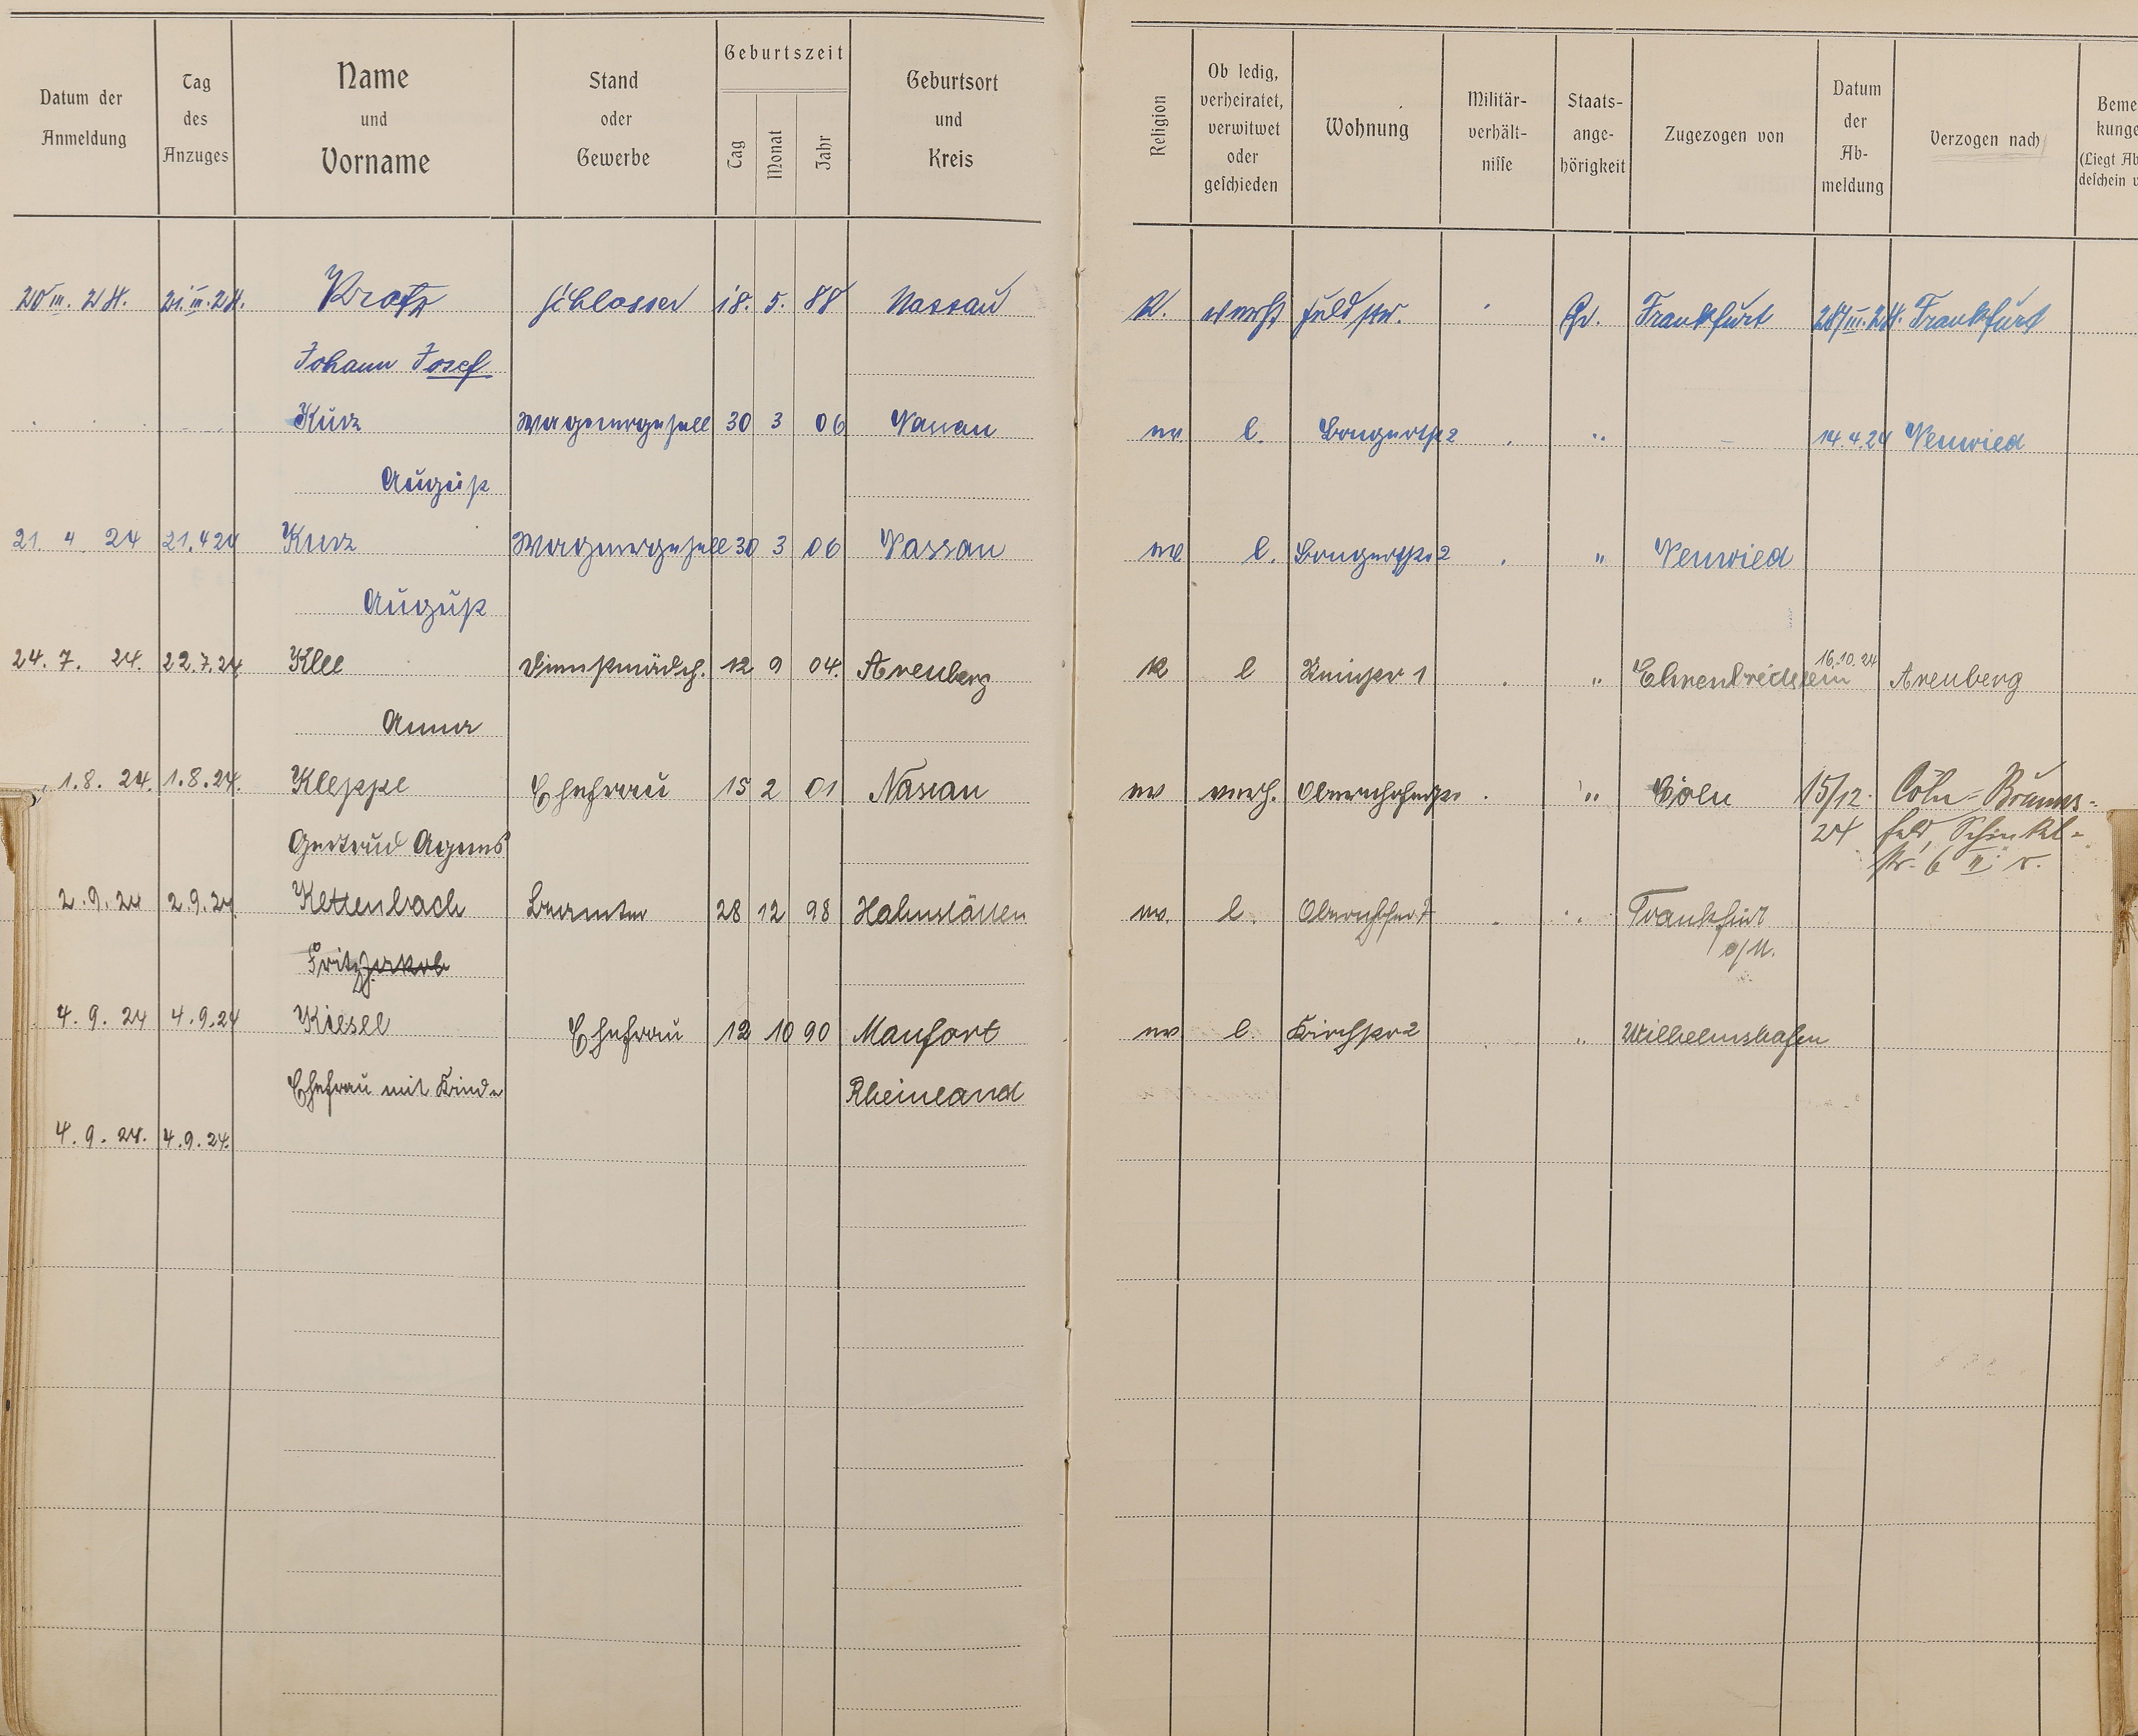 Datum der Anmeldung | Tag des Anzuges | Name und Vorname | Stand oder Gewerbe | Geburtszeit Tag Monat Jahr | Geburtsort und Kreis | Religion | Ob ledig, verheiratet, verwitwet oder geschieden | Wohnung | Militär-verhält-nisse | Staats-ange-hörigkeit | Zugezogen von | Datum der Ab-meldung | Verzogen nach | Beme kunge (Liegt Ab deschein u
20 III. 24. 21. III. 24. Kratz Schlosser 18. 5. 88 Nassau K. verh. Feldstr. Pr. Frankfurt III. 24. Frankfurt
Johann Josef
Kurz Wagnergeselle 30 3 06 Nassau ev l. Bongertstr 2 " 14.4.24 Neuwied
August
21. 4. 24 21.4.24 Kurz Wagnergesell 30 3 06 Nassau ev l. Bongertstr 2 " Neuwied
August
24. 7. 24. 22.7.24 Klee Dienstmädch. 12 9 04. Arenberg K l 1 " Ehrenbreitstein 16.10.24 Arenberg
Anna
1.8. 24. 1.8.24. Kleppe Ehefrau 15 2 01 Nassau ev verh. Obernhoferstr " Cöln 15/12. Cöln-Brauns-
Gertrud Agnes 24 feld, Schinkel-
str. 6 II. r.
2.9.24 2.9.24 Kettenbach Beamter 28 12 98 Hahnstätten ev. l. " Frankfurt
Fritz Jakob a/M.
4. 9. 24 4.9.24 Kiesel Ehefrau 12 10 90 Manfort ev l. Kirchstr 2 " Wilhelmshafen
Ehefrau mit Kinde Rheinland
4. 9. 24. 4.9.24.